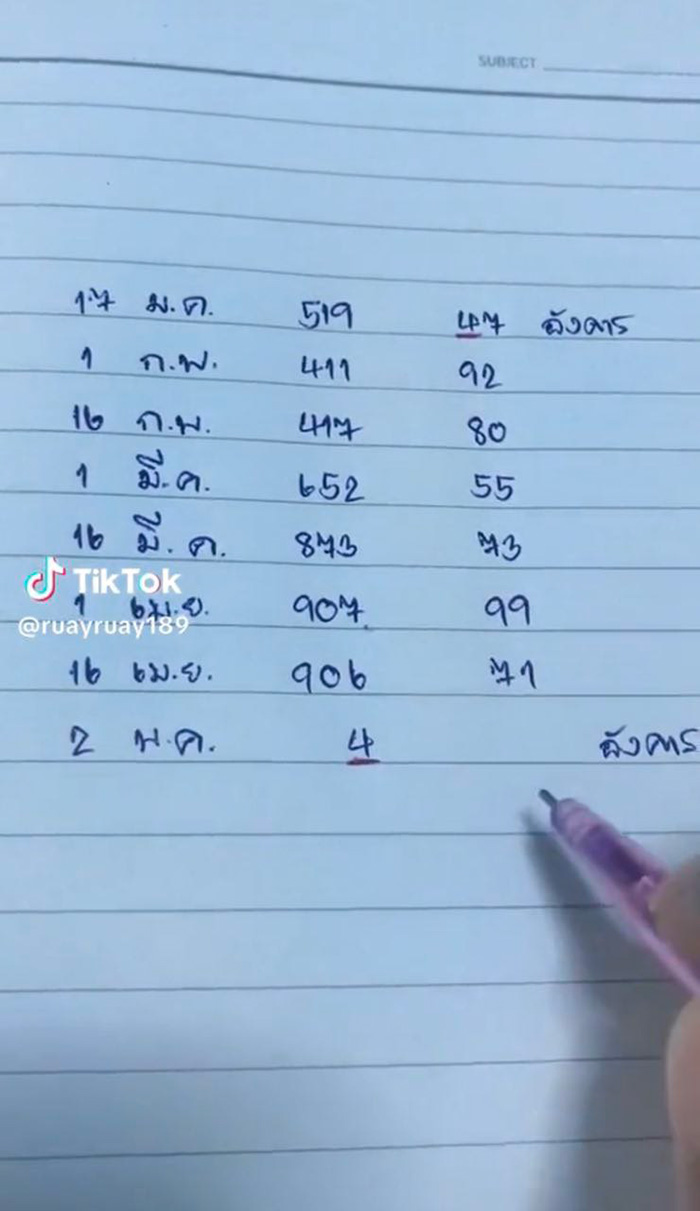 SUBJECT
17 ม.ค. 519 47 อังคาร
1 ก.พ. 411 92
16 ก.พ. 417 80
1 มี.ค. 652 55
16 มี.ค. 873 73
TikTok
1 เม.ย. 907 99
@ruayruay189
16 เม.ย. 906 71
2 พ.ค. 4 อังคาร